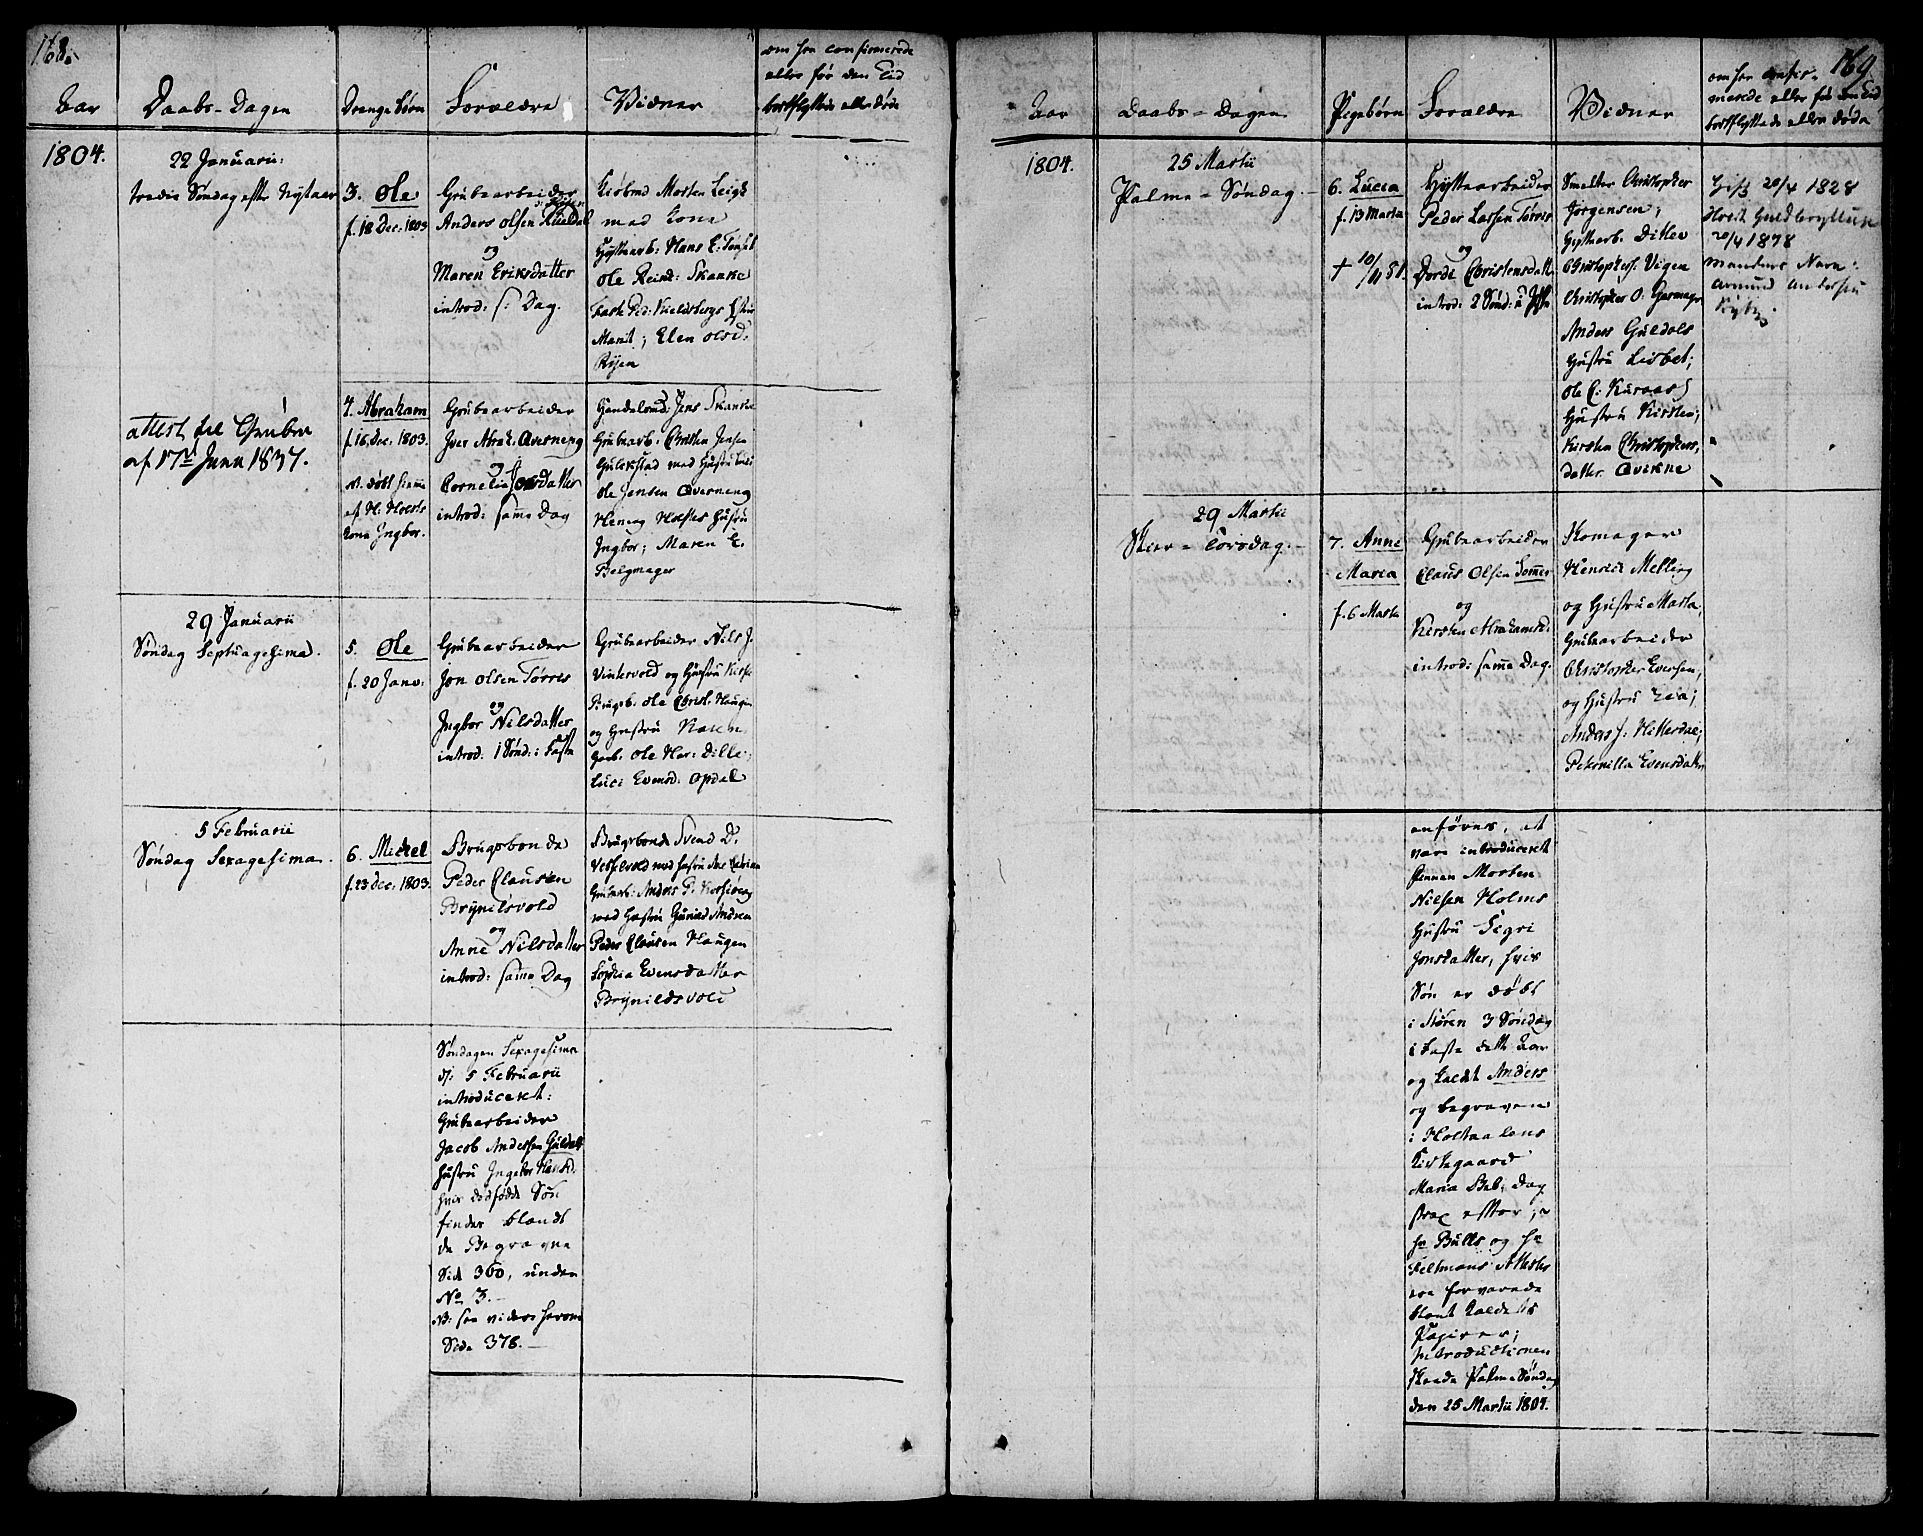 168.
Aar
Daabs-Dagen
Drenge Børn
Forældre
Vidner
om her confirmerede
eller før den Tid
bortflyttede eller døde
1804.
22 Januarii:
tredie Søndag efter Nytaar
3. Ole
f. 18 Dec. 1803
Grubearbeider
Anders Olsen
og
Maren Eriksdatter
introd: s: Dag.
Kiøbmd Morten Leigh
med Kone
Hyttearb. Hans E: Tamsøl
Ole Reind: Skaake
Marit; Elen Olsd.
Ryen
attest til Gruben
af 17de Juni 1837.
4. Abraham
f. 16. Dec. 1803.
N. døbt hiemme
af H: Holsts
Kone Ingbor.
Grubearbeider
Iver Abrah. Qverneng
og
Cornelia Jonsdatter
introd: samme Dag
Handelsmd: Jens Skancke
Grubearb. Christen Jensen
Gulikstad med Hustru
Ole Jensen Qverneng
Heneng Holstes Hustru
Ingbor; Maren E.
Belgmager
29 Januarii
Søndag Septuagesima.
5. Ole
f. 20 Janv:
Grubearbeider
Jon Olsen Tørres
og
Ingbor Nilsdatter
introd: 1 Sønd: i Faste
Grubearbeider Nils J.
Vintervold og Hustru Kirst
Brugsb. Ole Christ. Haugen
og Hustru Karen
Garb. Ole Har: Dille;
Luci Evensd. Opdal
5 Februarii
Søndag Sexagesima.
6. Mickel
f. 23 Dec. 1803.
Brugsbonde
Peder Clausen
Brynilsvold
og
Anne Nilsdatter
introd: samme Dag
Brugsbonde Svend D.
Grubarb: Anders P. Korssiøen
med Hustru Guruld Andrea
Peder Clausen Haugen
Sophia Evensdatter
Brynildsvold
Søndagen Sexagesima
d: 5 Februarii
introduceret:
Grubearbeider
Jacob Andersen Guldal
Hustru Ingebor Hansd.
hvis dødfødde Søn
findes blandt
de Begravne
Side 360, under
No 3.
NB: see videre herom
Side 378.
169
Aar
Daabs-Dagen
Pigebørn
Forældre
Vidner
om her confir-
merede eller før den Tid
bortflyttede eller døde
1804.
25 Martii
Palme-Søndag.
6. Lucia
f. 13 Martii
+ 10/11 51.
Hyttearbeider
Peder Larsen Tørres
og
Dorde Christensdatt
introd: 2 Sønd: i Fast
Smelter Christopher
Jørgensen;
Hyttearb. Ditlev
Christophers. Vigen
Christopher O: Garmager
Anders Guldals
Hustru Lisbet;
Ole C: Kuraas
Hustru Kirsten;
Kirsten Christophers,
datter Qvikne
Gift 20/4 1828
Holdt Guldbryllup
20/4 1878
mandens Navn:
Amund Andersen
29 Martii
Skier-Torsdag.
7. Anne
Maria
f. 6 Martii
Grubearbeider
Claus Olsen Sommer
og
Kirsten Abrahamsd.
introd: samme Dag.
Skomager
Henrik Melling
og Hustru Marta;
Grubearbeider
Christopher Eversen,
og Hustru Lea;
Anders J. Hitterdal;
Petronilla Evensdatter
anføres, at
være introduceret
Morten
Nielsen Holms
Hustru Sigri
Jonsdatter, hvis
Søn er døbt
i Støren 3 Søndag
i Faste dette Aar
og kaldt Anders
og begraven
i Holtaalens
Kirkegaard
Maria Beb. Dag
strax efter;
hr Bulls og hr
Feltmans Attester
ere forvarede
blant Kaldets
Papirer;
Introductionen
skeede Palme Søndag
den 25 Martii 1804.